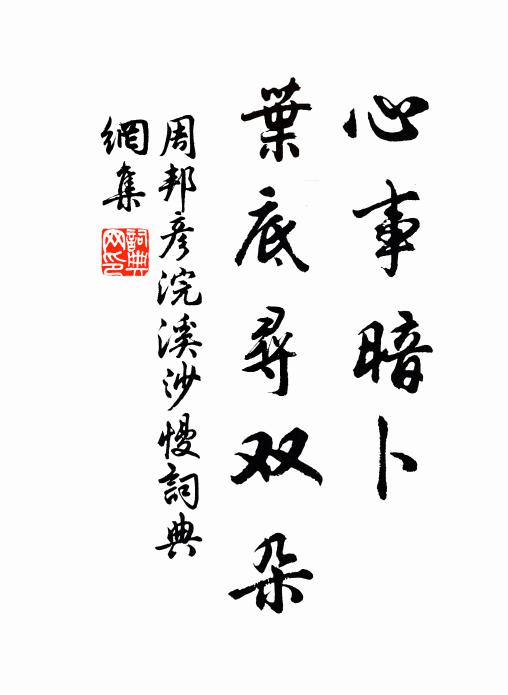 心事暗卜
葉底尋双朵
周邦彦浣溪沙慢詞典
網集
詞典网印